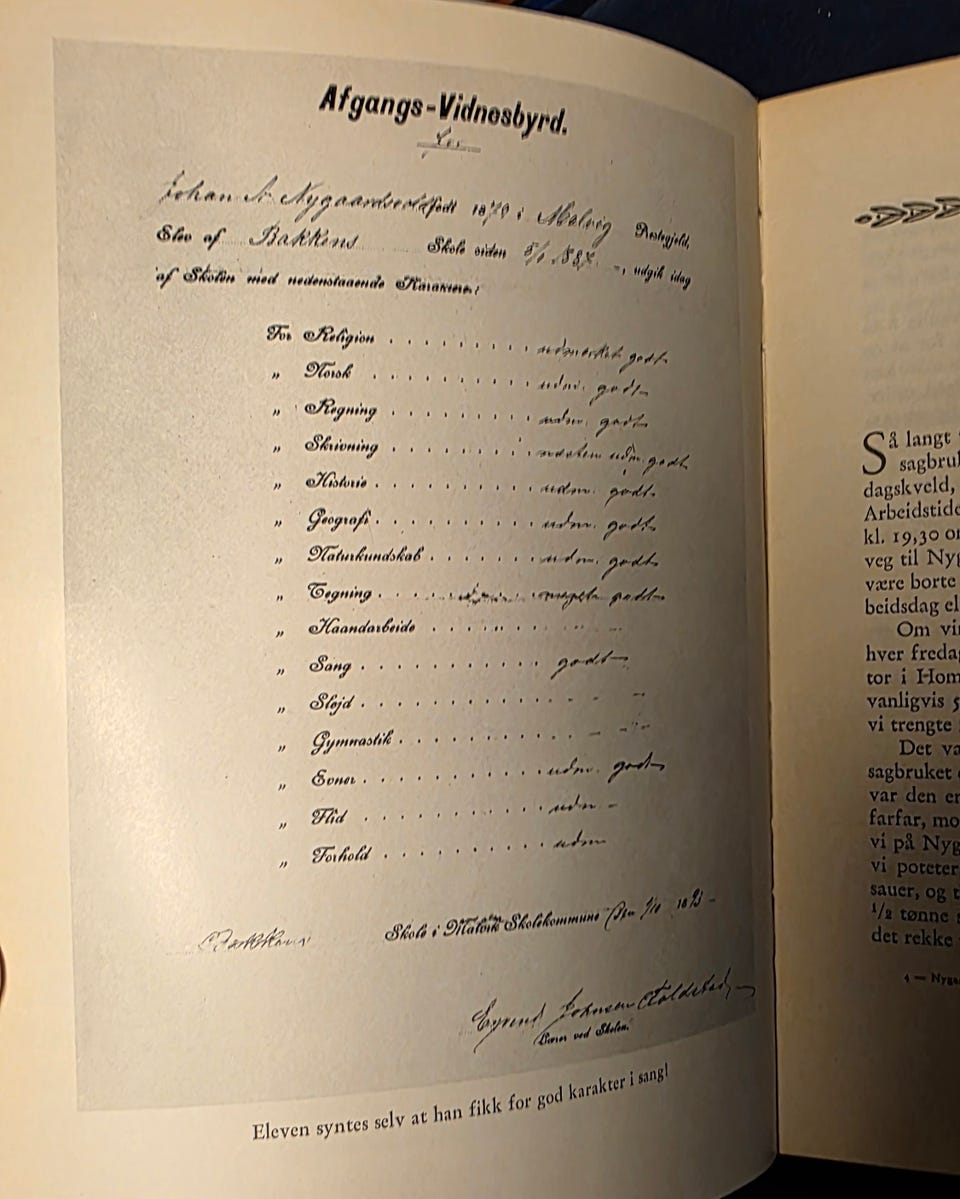 Afgangs-Vidnesbyrd.
for
Johan A. Nygaardsvold født 1879 i Malvig Præstegjeld,
Elev af Bakkens Skole siden 5/1 1887 -, udgik idag
af Skolen med nedenstaaende Karakterer:
For Religion . . . . . . . . udmærket godt
„ Norsk . . . . . . . . udm. godt
„ Regning . . . . . . . . udm. godt
„ Skrivning . . . . . . . . næsten udm. godt
„ Historie . . . . . . . . udm. godt.
„ Geografi . . . . . . . . udm. godt
„ Naturkundskab . . . . . . udm. godt
„ Tegning . . . . meget godt
„ Haandarbeide . . . . . . . .
„ Sang . . . . . . . . . . godt
„ Sløjd . . . . . . . . . . - -
„ Gymnastik . . . . . . . . . - -
„ Evner . . . . . . . . . udm. godt
„ Flid . . . . . . . . . udm -
„ Forhold . . . . . . . . udm
Bakkens Skole i Malvik Skolekommune den 1/10 1893 -
Eyvend Johnsen Foldstad
Lærer ved Skolen.
Eleven syntes selv at han fikk for god karakter i sang!
Så langt
sagbru
dagskveld,
Arbeidstide
kl. 19,30 o
veg til Nyg
være borte
beidsdag el
Om vi
hver freda
tor i Hom
vanligvis 5
vi trengte
Det va
sagbruket
var den e
farfar, mo
vi på Nyg
vi poteter
sauer, og t
1/2 tønne
det rekke
4 — Nyga